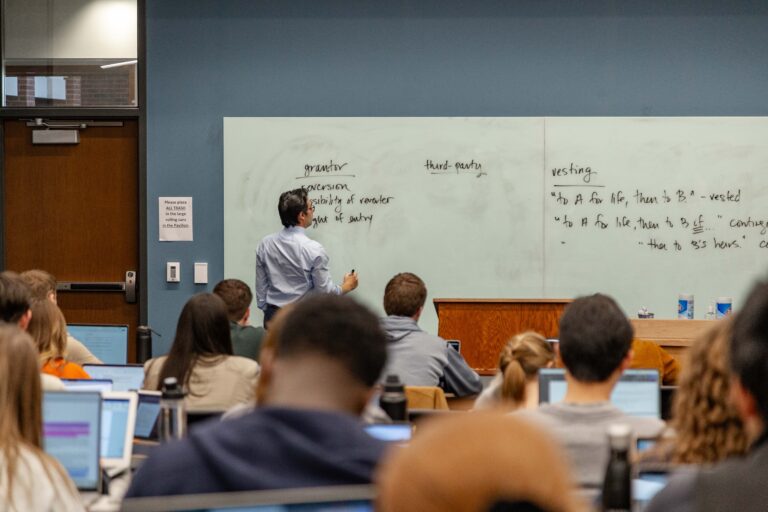 Please place
ALL TRASH
in the large
rolling cans
in the Pavilion
grantor
reversion
possibility of reverter
right of entry
third-party
vesting
"to A for life, then to B" - vested
"to A for life, then to B if..."
" "then to B's heirs."